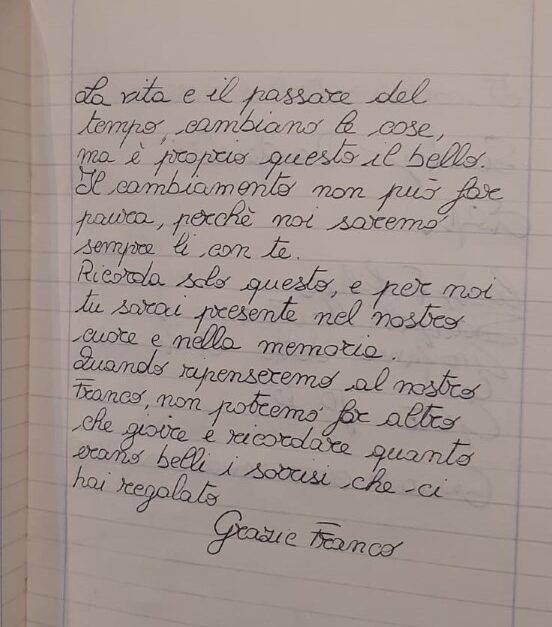 La vita e il passare del
tempo, cambiano le cose,
ma è proprio questo il bello.
Il cambiamento non può far
paura, perchè noi saremo
sempre li con te.
Ricorda solo questo, e per noi
tu sarai presente nel nostro
cuore e nella memoria.
Quando ripenseremo al nostro
Franco, non potremo far altro
che gioire e ricordare quanto
erano belli i sorrisi che ci
hai regalato
Grazie Franco